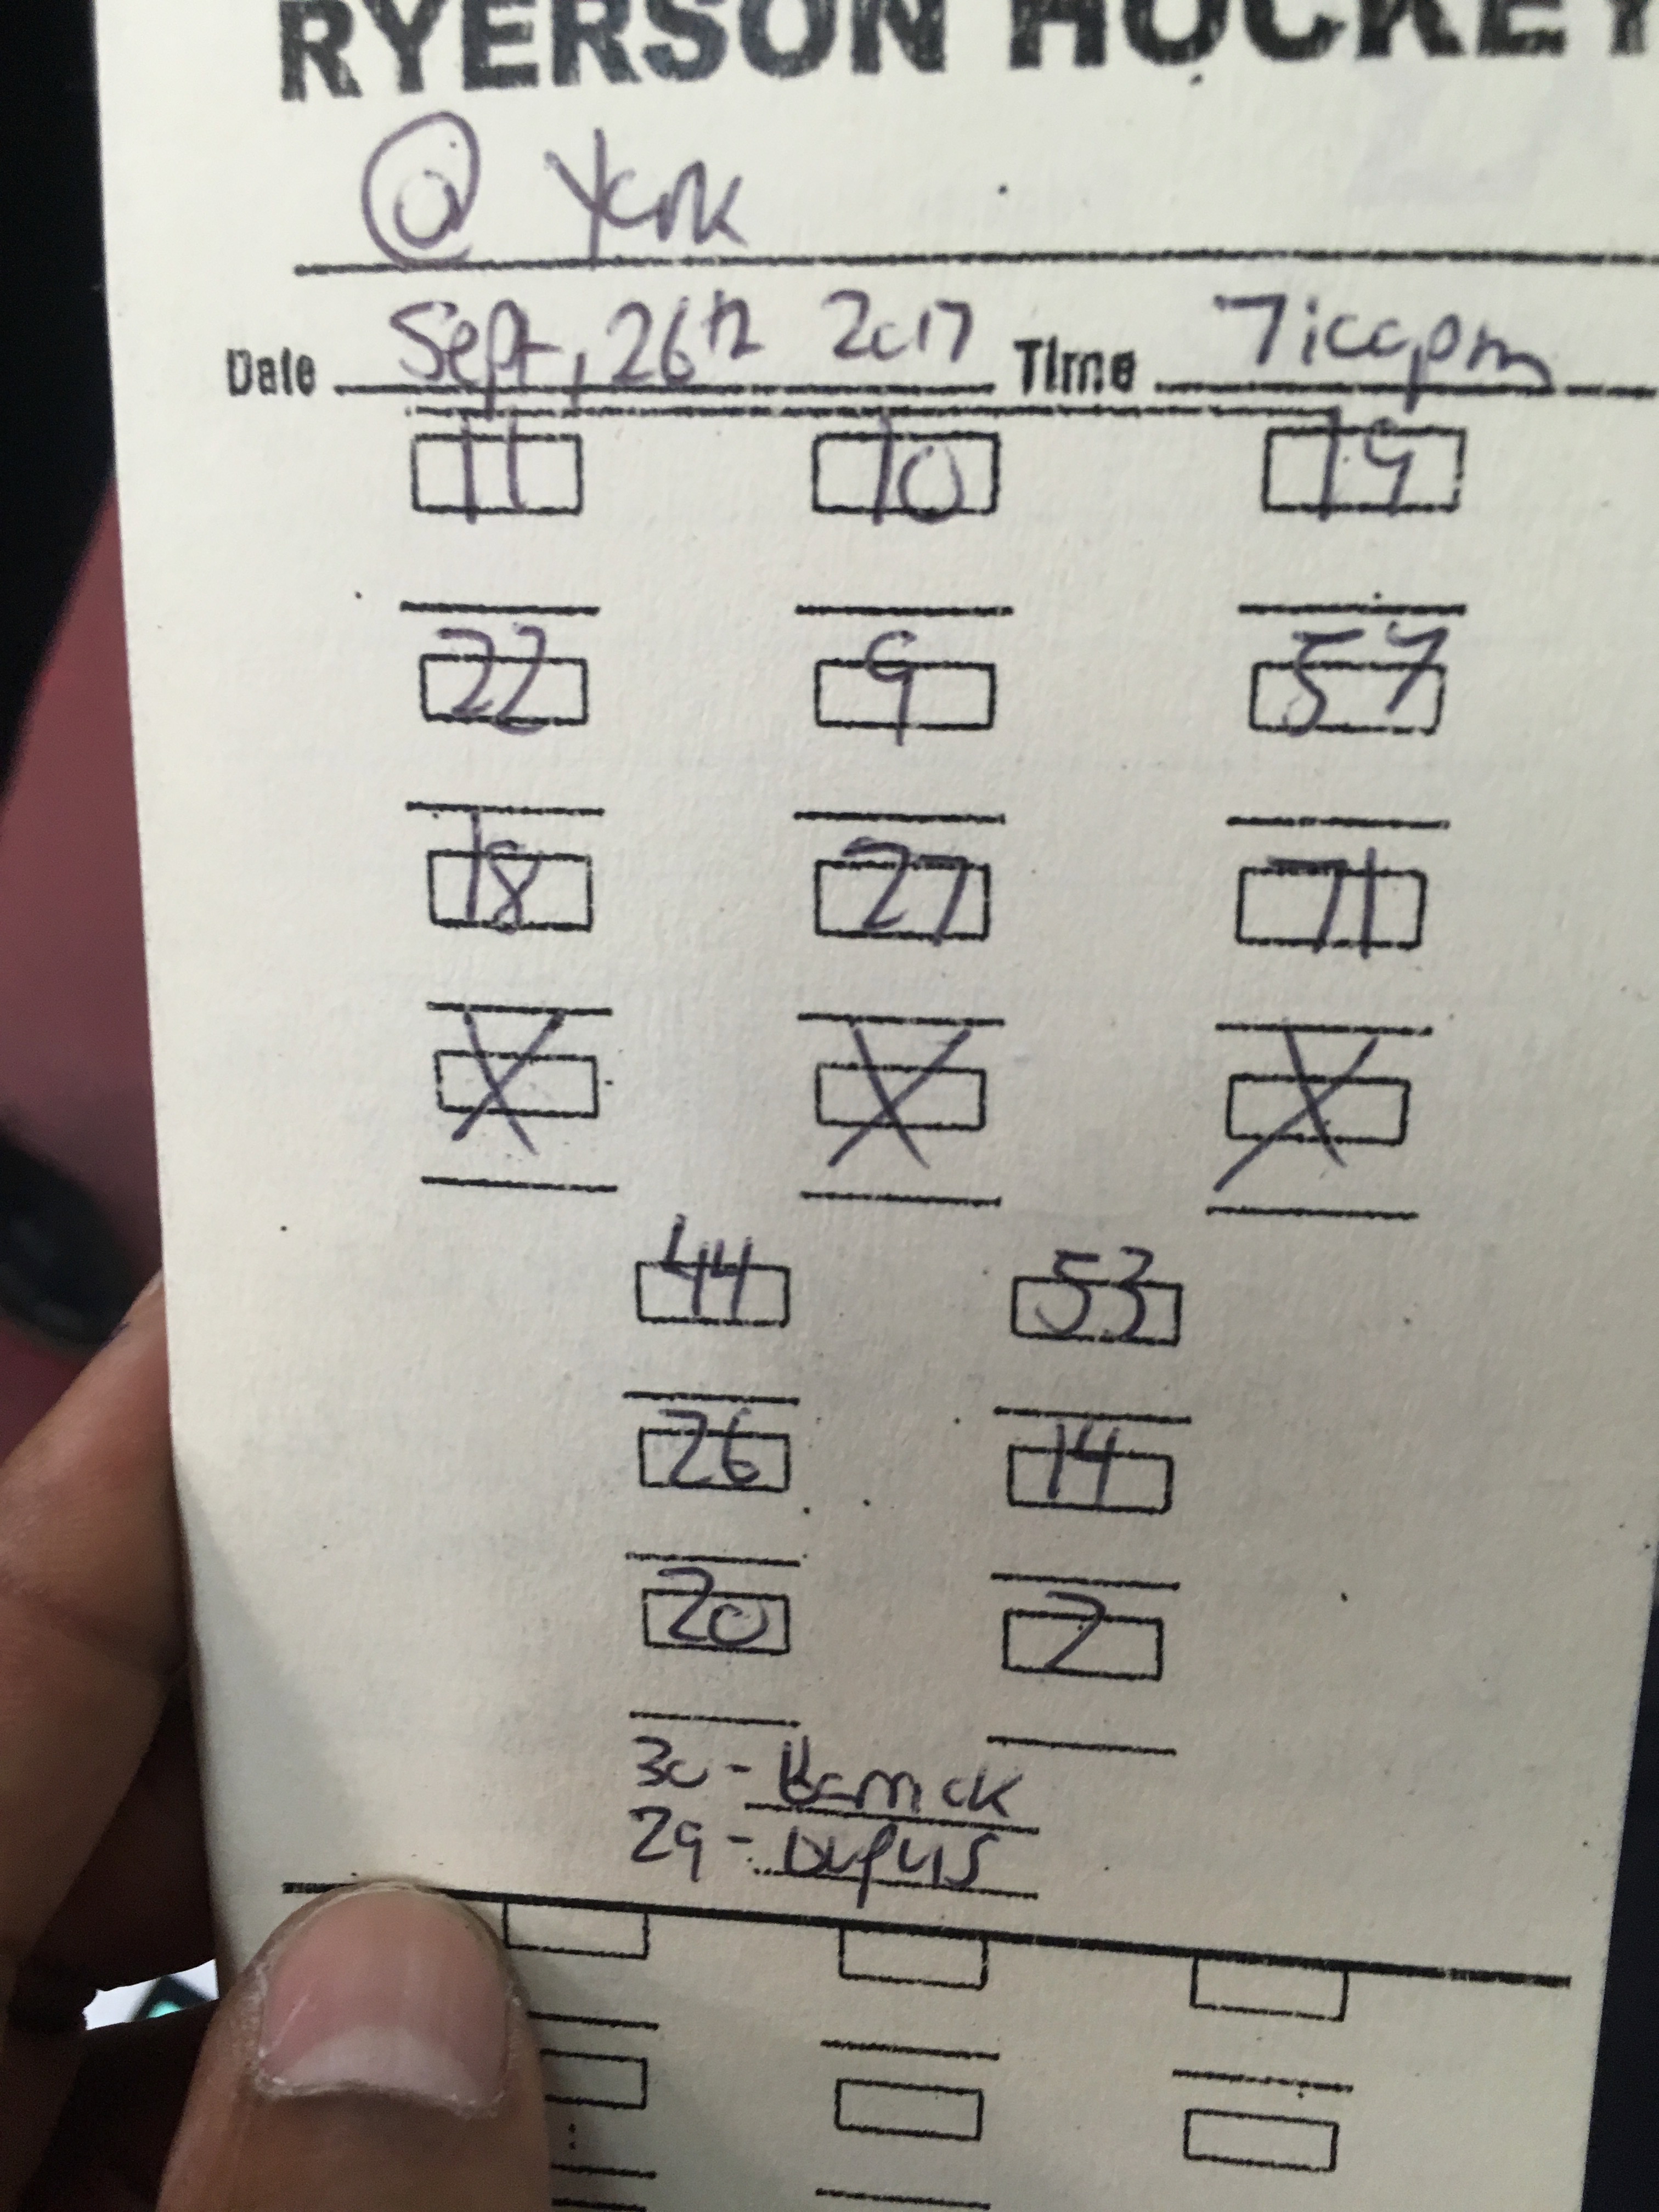 RYERSON HOCKEY
@ York
Date Sept, 26th 2017 Time 7:00pm
11 10 19
22 9 57
18 27 71
X X X
44 53
26 14
20 2
30 -
29 - Dupuis